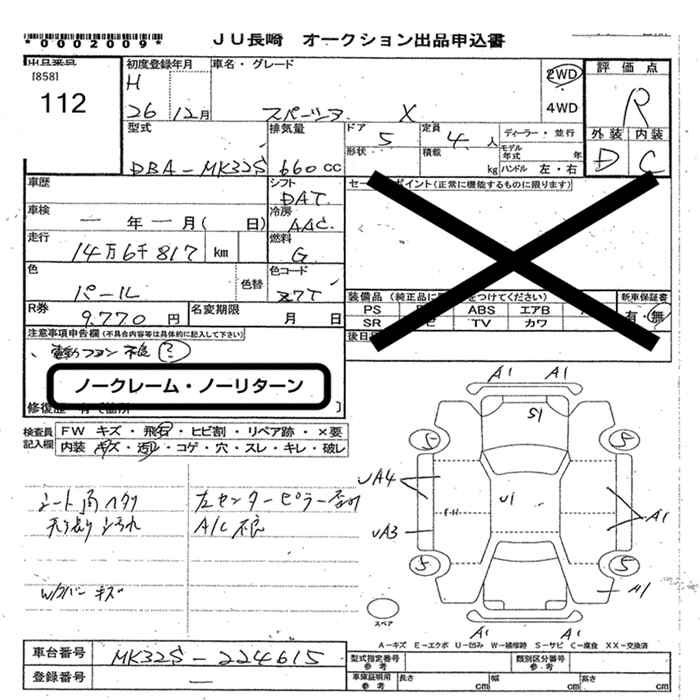 *0002009*
JU長崎 オークション出品申込書
出品番号
[858]
112
初度登録年月
H
26 12月
車名・グレード
スペーシア X
2WD
4WD
評価点
R
外装 内装
D C
型式
DBA-MK32S
排気量
660 CC
ドア 5
形状
定員 4人
積載 kg
ディーラー・並行
モデル年式 年
ハンドル 左・右
車歴
シフト
DAT
セールスポイント(正常に機能するものに限ります)
車検
一年一月( 日)
冷房
AAC
走行
14万6千817 km
燃料
G
色
パール
色替
色コード
Z7T
装備品(純正品に
をつけてください)
新車保証書
PS ABS エアB
SR TV カワ
有・無
R券
9,770 円
名変期限
月 日
後日
注意事項申告欄(不具合内容等は具体的に記入して下さい)
、電動フアン不良(?)
ノークレーム・ノーリターン
修復歴
検査員記入欄
FW キズ・飛石・ヒビ割・リペア跡・×要
内装 キズ・汚れ・コゲ・穴・スレ・キレ・破レ
シート角ヘタリ
天張りよごれ
左センターピラー
A/C不良
W/カバーキズ
A1 A1
S1
5 5
UA4
U1
A1
UA3
5 5
A1 A1
スペア
A-キズ E-エクボ U-凹み W-補修跡 S-サビ C-腐食 XX-交換済
車台番号
MK32S-224615
登録番号
—
型式指定番号
参考
類別区分番号
参考
車庫証明用
参考
長さ cm
幅 cm
高さ cm